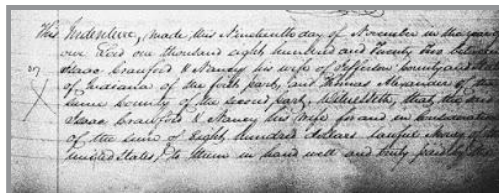 This Indenture, made this Nineteenth day of November in the year of
our Lord one thousand eight hundred and Twenty Two between
Isaac Crawford & Nancy his wife of Jefferson County and State
of Indiana of the first part, and Thomas Alexander of the
same County of the second part, Witnesseth, that the said
Isaac Crawford & Nancy his wife for and in consideration
of the sum of Eighty hundred dollars lawful money of the
United States, to them in hand well and truly paid by the